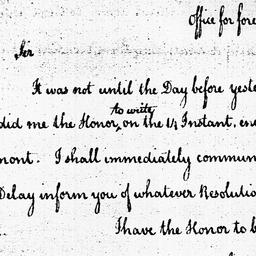 Office for fore
Sir
It was not until the Day before yeste
to write
did me the Honor, on the 14 Instant, en
mont. I shall immediately commun
Delay inform you of whatever Resolutio
I have the Honor to b